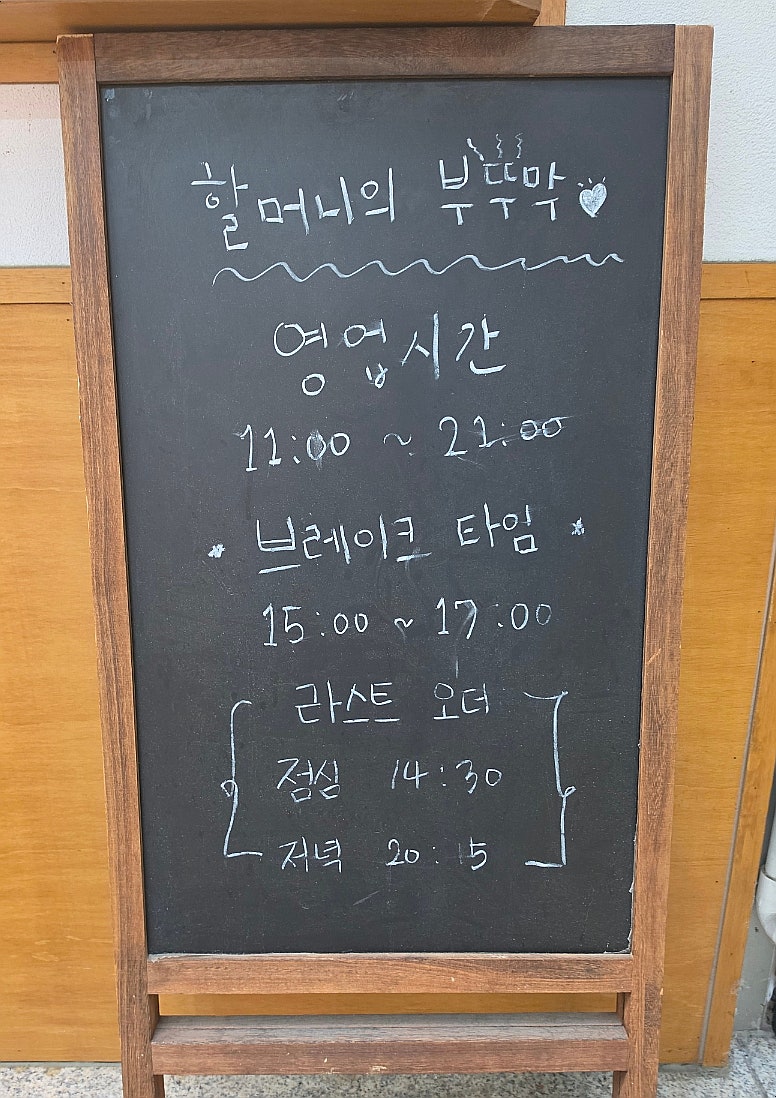 할머니의 부뚜막
영업시간
11:00 ~ 21:00
브레이크 타임
15:00 ~ 17:00
라스트 오더
점심 14:30
저녁 20:15